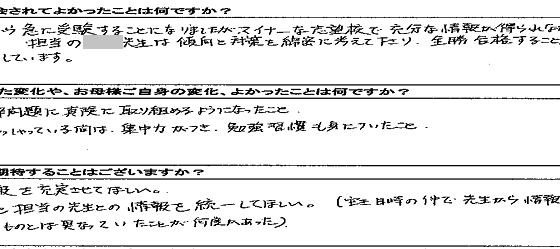 されてよかったことは何ですか？
ら急に受験することになりましたがマイナーな志望校で充分な情報が得られな
担当の 先生は傾向と対策を綿密に考えて下さり、全勝合格すること
しています。
た変化や、お母様ご自身の変化、よかったことは何ですか？
問題に真剣に取り組めるようになったこと．
っしゃっている間は、集中力がつき、勉強習慣も身についたこと．
期待することはございますか？
を充実させてほしい。
と担当の先生との情報を統一してほしい。 (宝 日時の件で先生から情報
ものとは異なっていたことが何度かあった)．